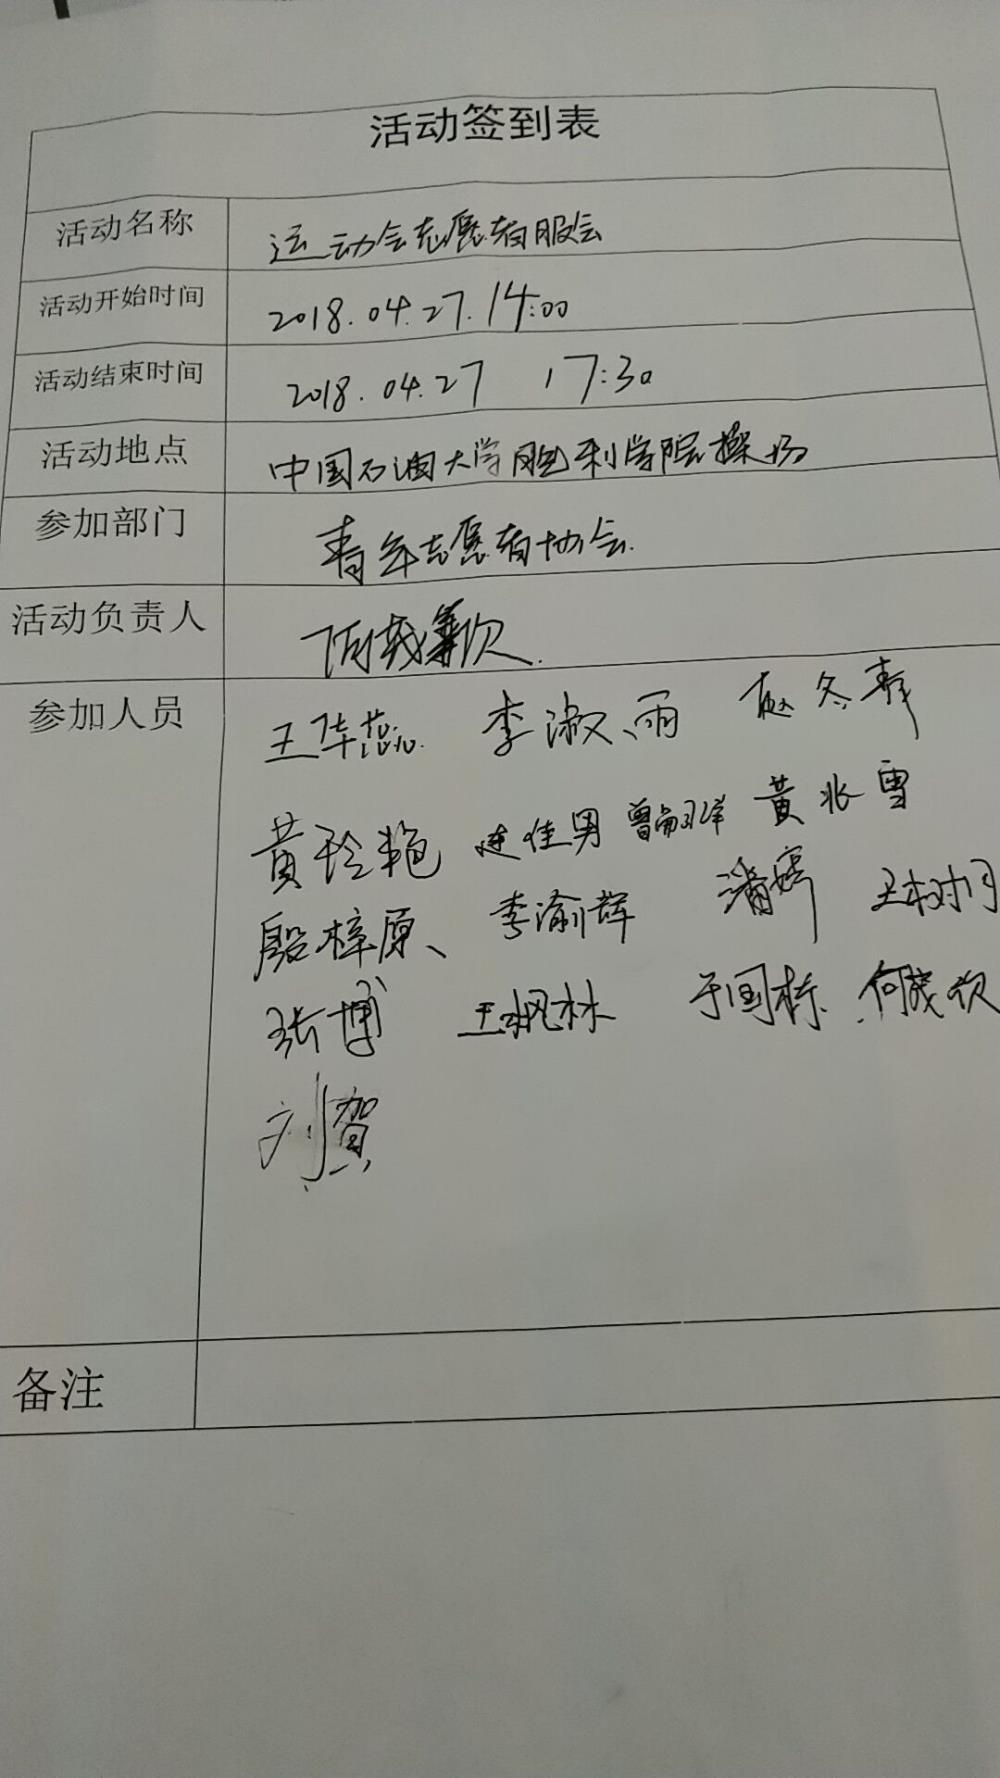 活动签到表
活动名称 运动会志愿者服会
活动开始时间 2018.04.27.14:00
活动结束时间 2018.04.27 17:30
活动地点 中国石油大学胜利学院操场
参加部门 青年志愿者协会
活动负责人
参加人员 王华蕊 李淑雨 赵冬青
黄玲艳 连佳男 黄兆雪
殷梓原、 李渝辉 潘婷 王树
张博 王枫林 于国栋 何成欢
刘贺
备注